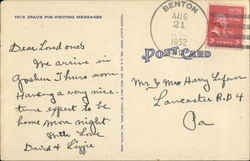 THIS SPACE FOR WRITING MESSAGES
BENTON
AUG
21
1952
POST CARD
Dear Loved ones
We arrive in
Goshen Thurs noon
Having a very nice
time expect to be
home mon night
With Love
David & Lizzie
Mr & Mrs Harry
Lancaster R.D 4
Pa